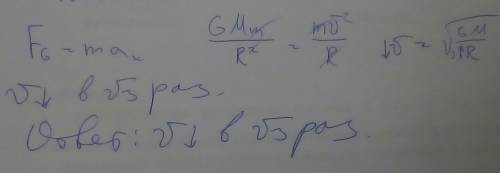 F_G = ma_n GMm/R² = mv²/R ↓v = √(GM/↑R)
v↓ в √3 раз.
Ответ: v↓ в √3 раз.